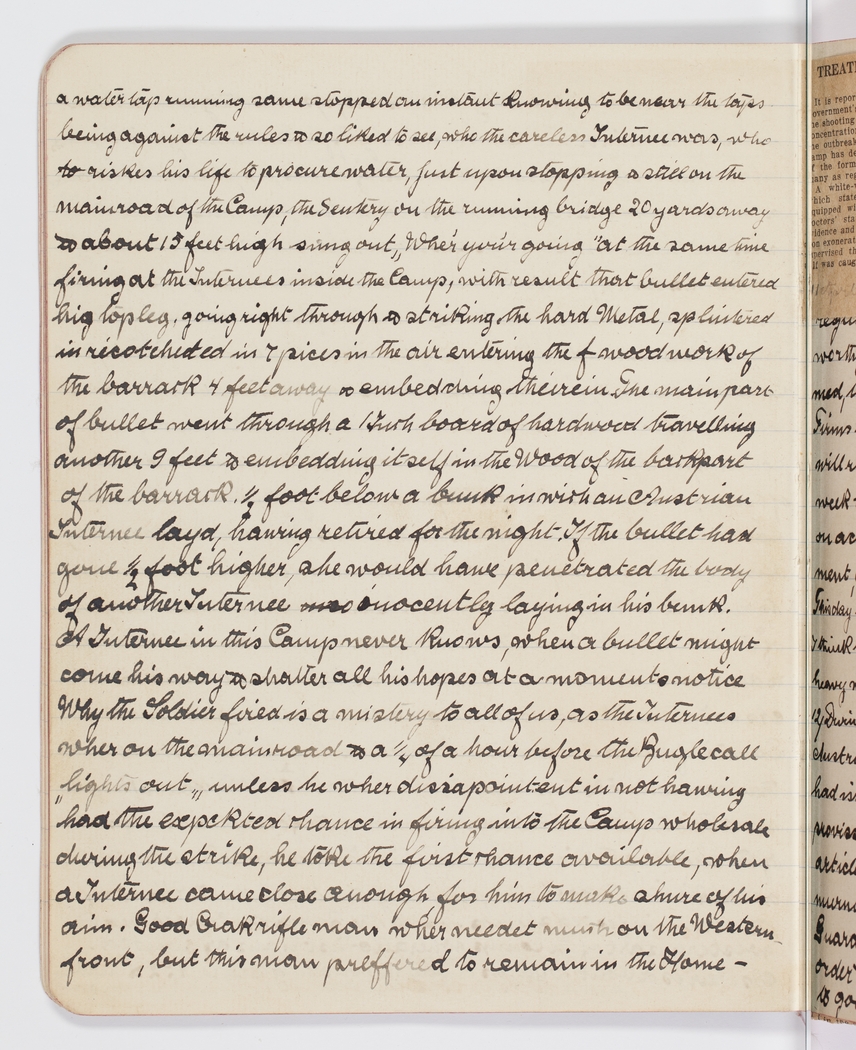 a water tap running same stopped an instant knowing to be near the taps
being against the rules & so liked to see, who the careless Internee was, who
to riskes his life to procure water, just upon stopping & still on the
mainroad of the Camp, the Sentery on the running bridge 20 yards away
& about 15 feet high sung out, „Whe'r you'r going" at the same time
firing at the Internees inside the Camp, with result that bullet entered
hig top leg. going right through & striking the hard Metal, splintered
in recotcheted in 7 pices in the air entering the f woodwork of
the barrack 4 feet away & embedding theirein. The main part
of bullet went through a 1 Inch board of hardwood travelling
another 9 feet & embedding it self in the Wood of the backpart
of the barrack. ½ foot below a bunk in wich an Austrian
Internee layd, hawing retired for the night. If the bullet had
gone ½ foot higher, she would hawe penetrated the body
of another Internee inocently laying in his bunk.
A Internee in this Camp never knows, when a bullet might
come his way & shatter all his hopes at a moments notice
Why the Soldier fired is a mistery to all of us, as the Internees
wher on the mainroad & a ¼ of a hour before the Buglecall
„lights out„ unless he wher dissapointent in not hawing
had the expckted chance in firing into the Camp wholesale
during the strike, he toke the first chance available, when
a Internee came close anough for him to make a hure of his
aim. Good Crak rifle man wher needet much on the Western
front, but this man preffered to remain in the Home –
TREAT
It is repor
overnment's
he shooting
oncentration
he outbreak
amp has de
f the form
any as reg
A white-
hich state
quipped wi
octors' sta
idence and
on exonerat
pervised th
It was caug
regu
worth
med,
Firms
will r
week
on ac
ment,
Thisday
I think
heavy
12) Durin
Austr
had is
provis
article
murn
Guard
order
& go